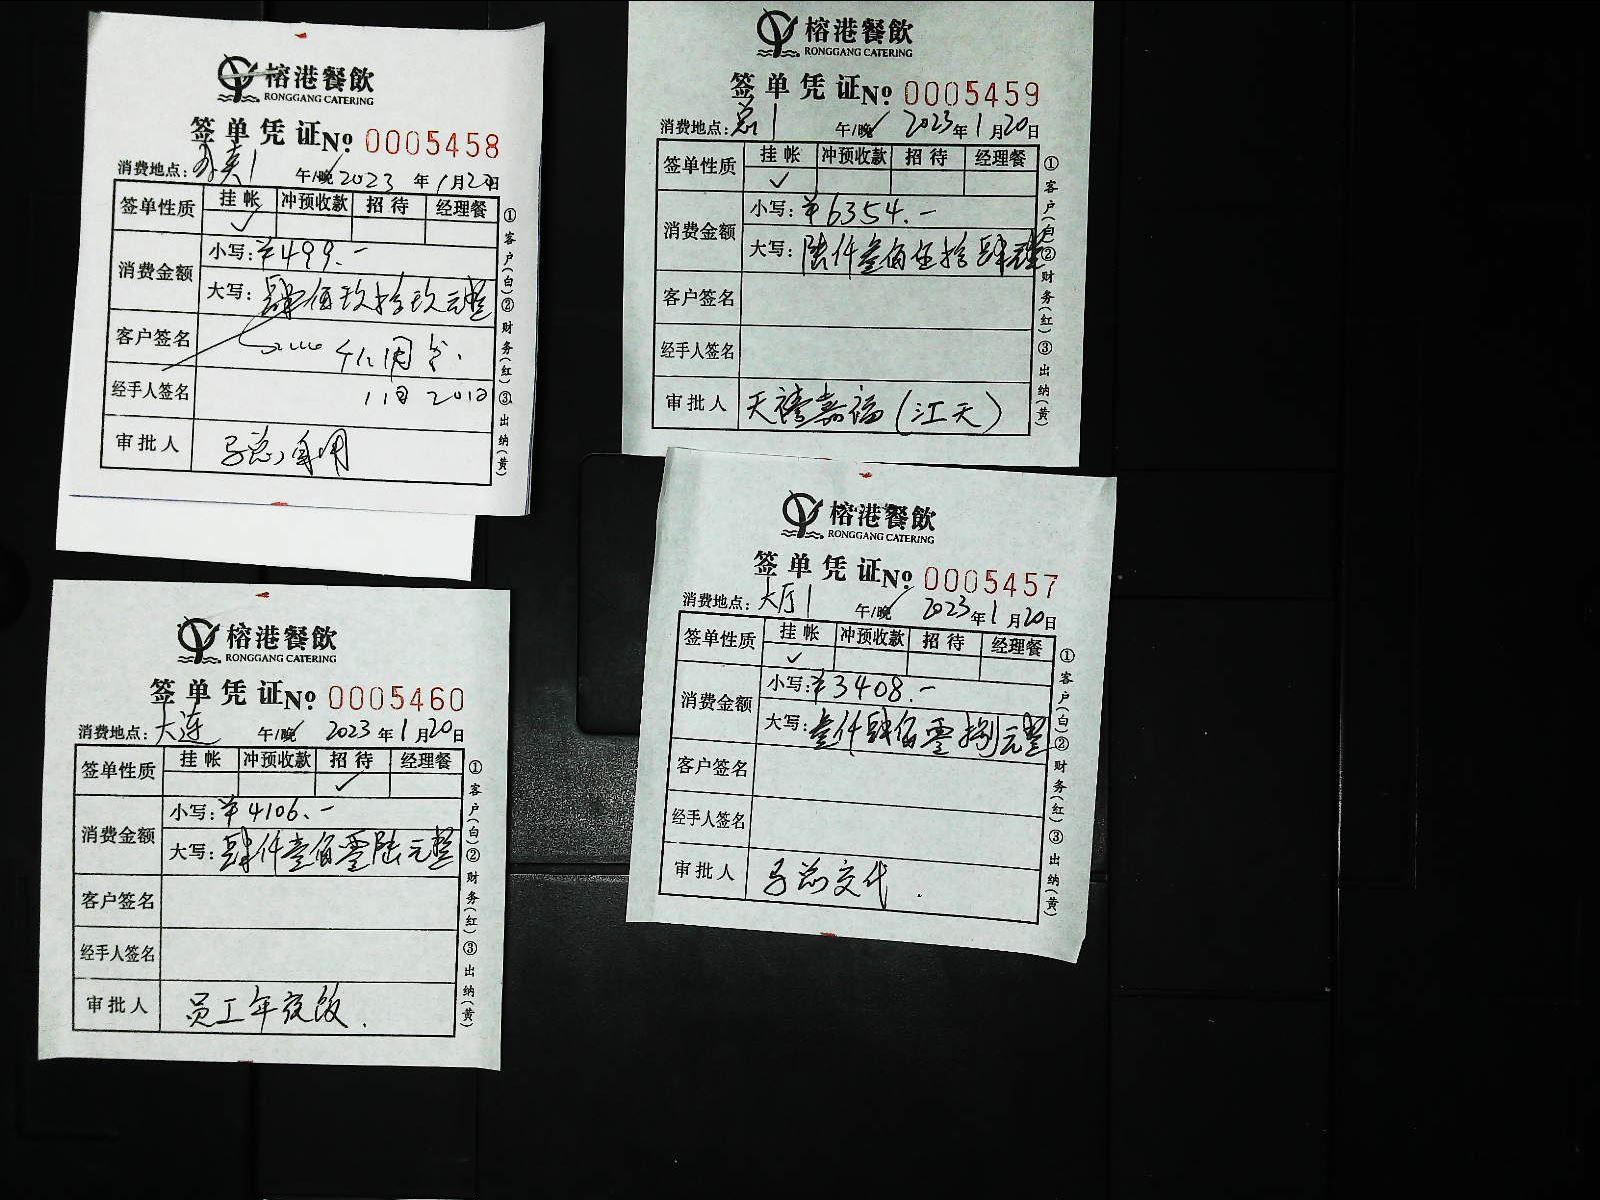 榕港餐飲
RONGGANG CATERING
签单凭证 No. 0005458
消费地点: 外卖1 午/晚 2023年1月20日
签单性质 挂帐 冲预收款 招待 经理餐
✓
消费金额 小写: ¥499.-
大写: 肆佰玖拾玖元整
客户签名
经手人签名 1月20日
审批人 马总自用
①客户(白)②财务(红)③出纳(黄)
榕港餐飲
RONGGANG CATERING
签单凭证 No. 0005459
消费地点: 总1 午/晚 2023年1月20日
签单性质 挂帐 冲预收款 招待 经理餐
✓
消费金额 小写: ¥6354.-
大写: 陆仟叁佰伍拾肆元整
客户签名
经手人签名
审批人 天禧嘉福(江天)
①客户(白)②财务(红)③出纳(黄)
榕港餐飲
RONGGANG CATERING
签单凭证 No. 0005460
消费地点: 大连 午/晚 2023年1月20日
签单性质 挂帐 冲预收款 招待 经理餐
✓
消费金额 小写: ¥4106.-
大写: 肆仟壹佰零陆元整
客户签名
经手人签名
审批人 员工年夜饭.
①客户(白)②财务(红)③出纳(黄)
榕港餐飲
RONGGANG CATERING
签单凭证 No. 0005457
消费地点: 大厅1 午/晚 2023年1月20日
签单性质 挂帐 冲预收款 招待 经理餐
✓
消费金额 小写: ¥3408.-
大写: 叁仟肆佰零捌元整
客户签名
经手人签名
审批人 马总交代.
①客户(白)②财务(红)③出纳(黄)